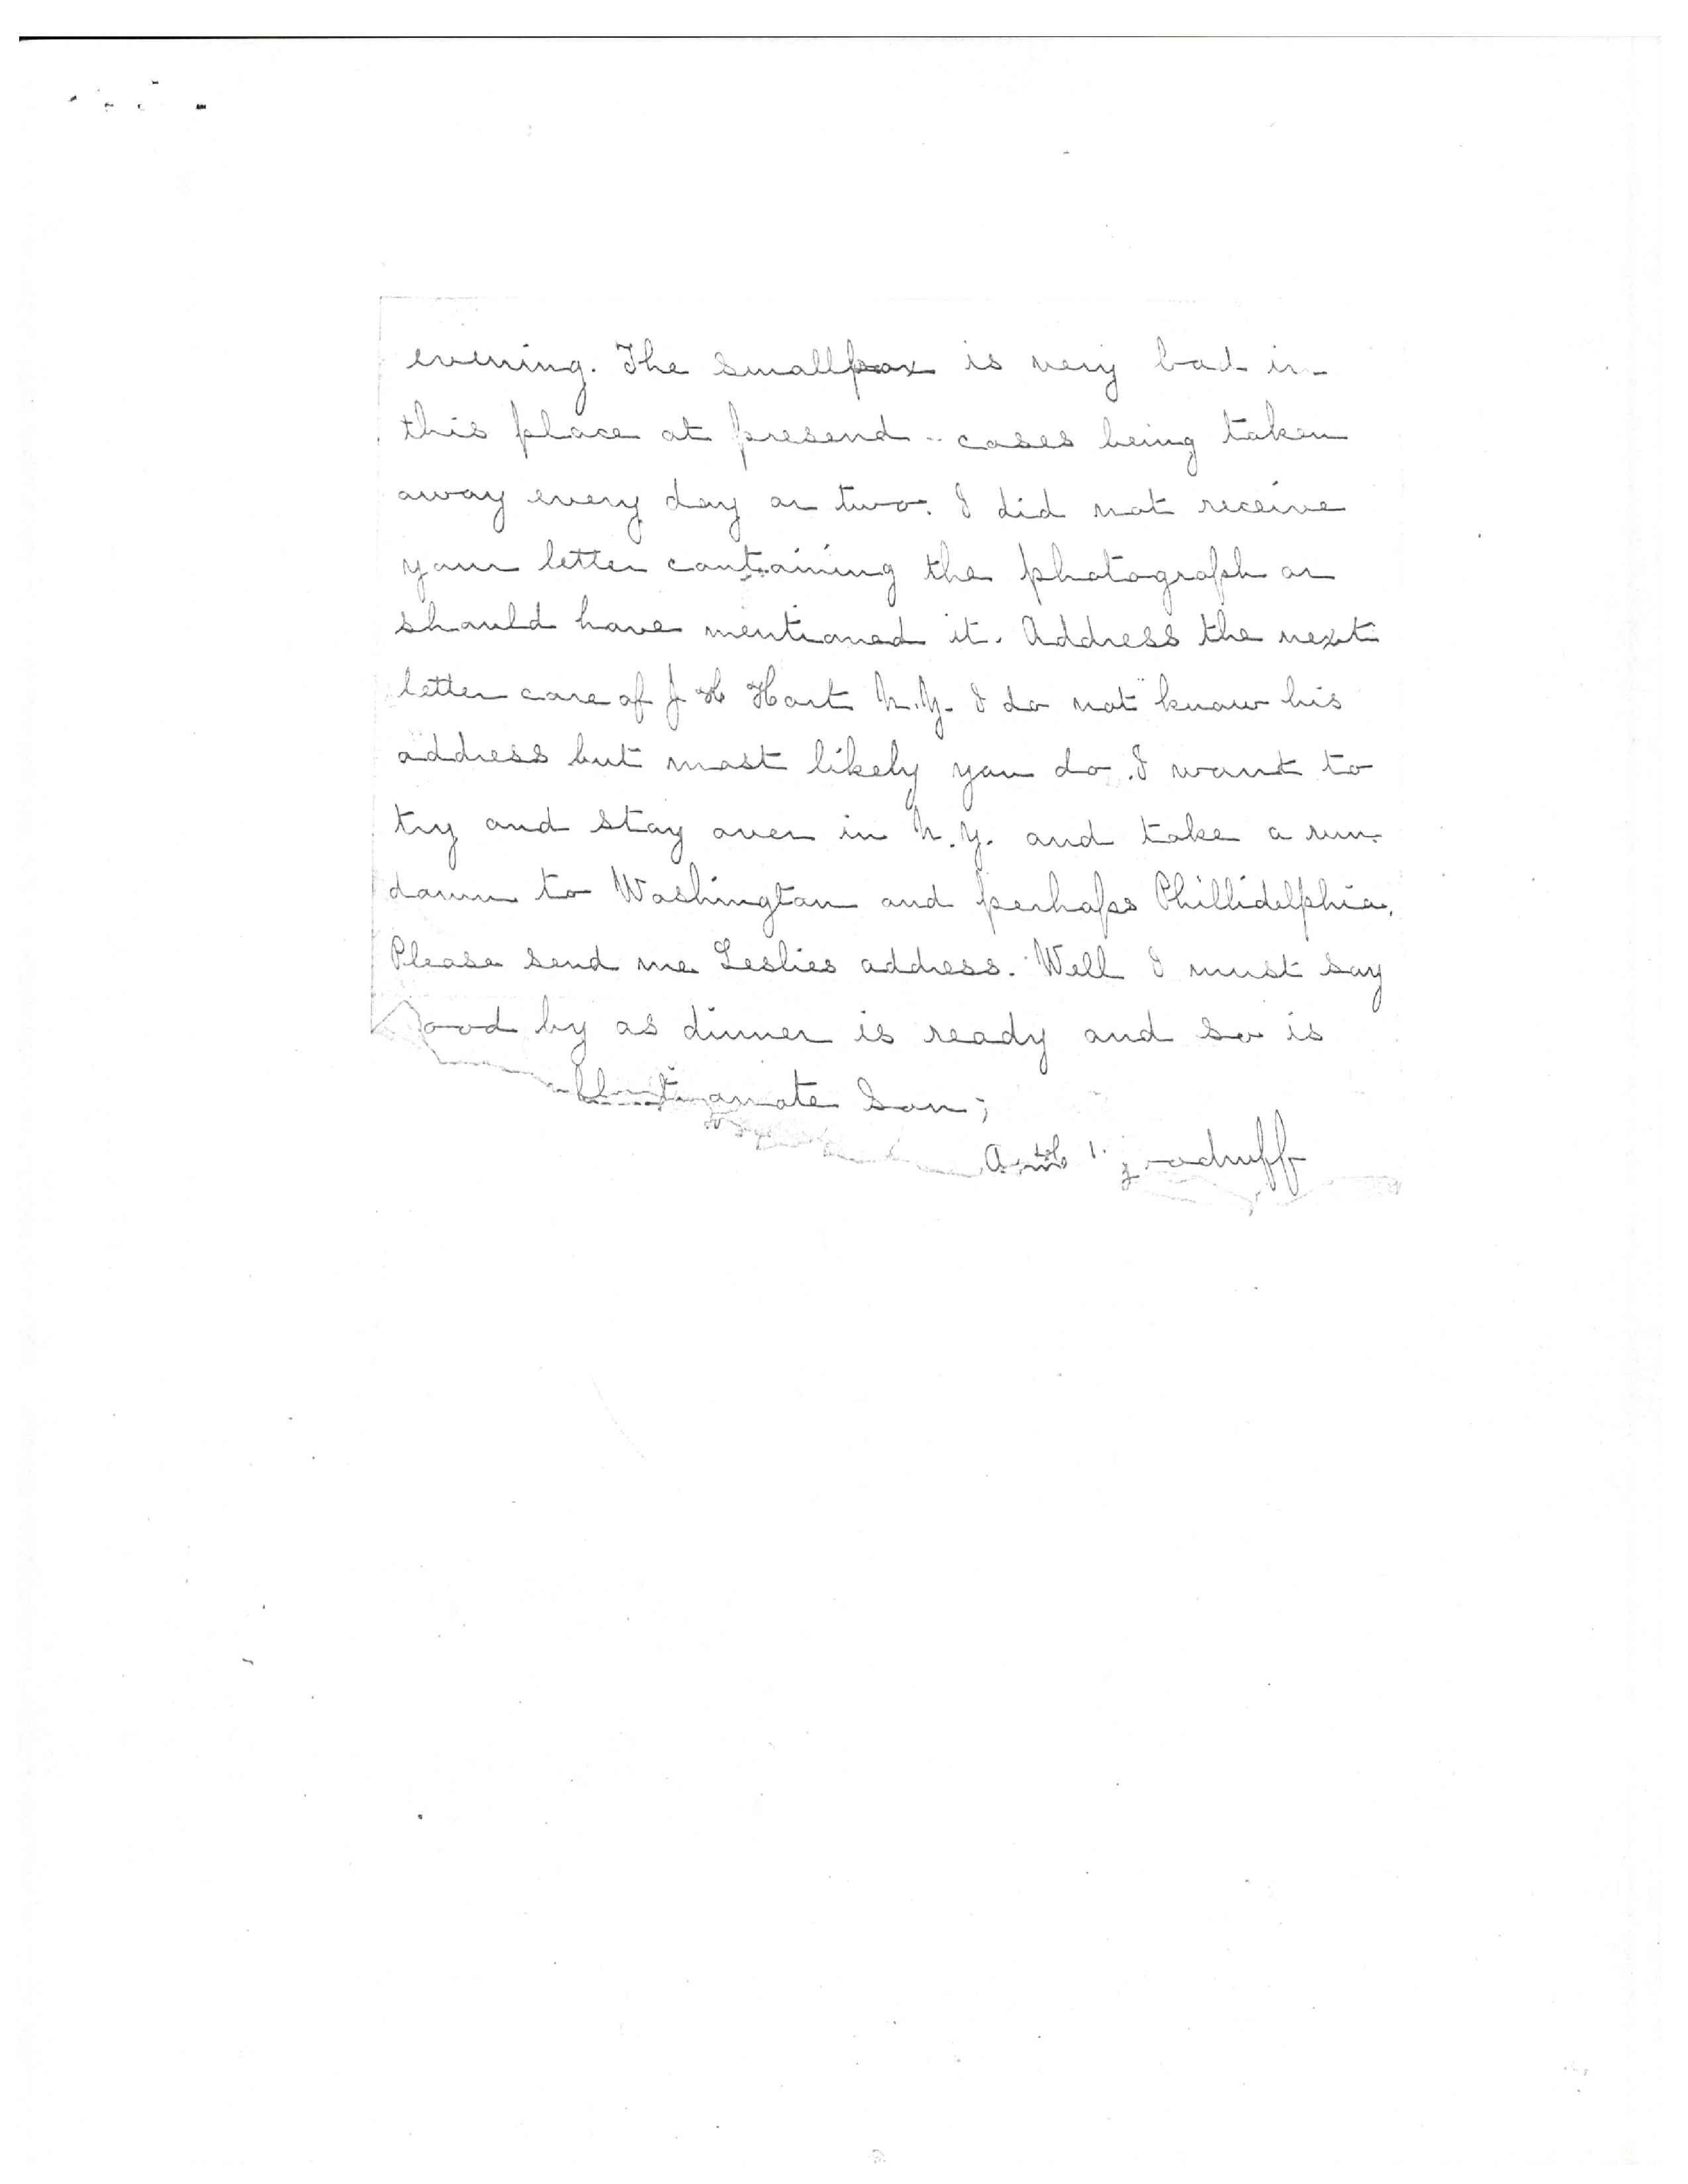 evening. The smallpox is very bad in
this place at presend - cases being taken
away every day or two. I did not receive
your letter containing the photograph or
should have mentioned it. Address the next
letter care of J H Hart N.Y. I do not know his
address but most likely you do. I want to
try and stay over in N.Y. and take a run
down to Washington and perhaps Phillidelphia.
Please send me Leslies address. Well I must say
ood by as dinner is ready and so is
Son;